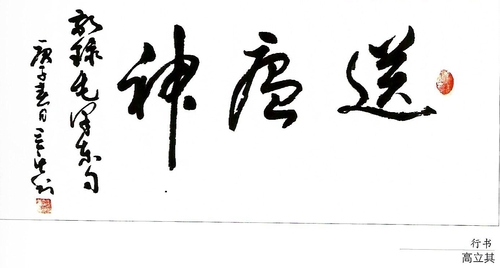 送瘟神
敬录毛泽东句
庚子春日立其
行书
高立其